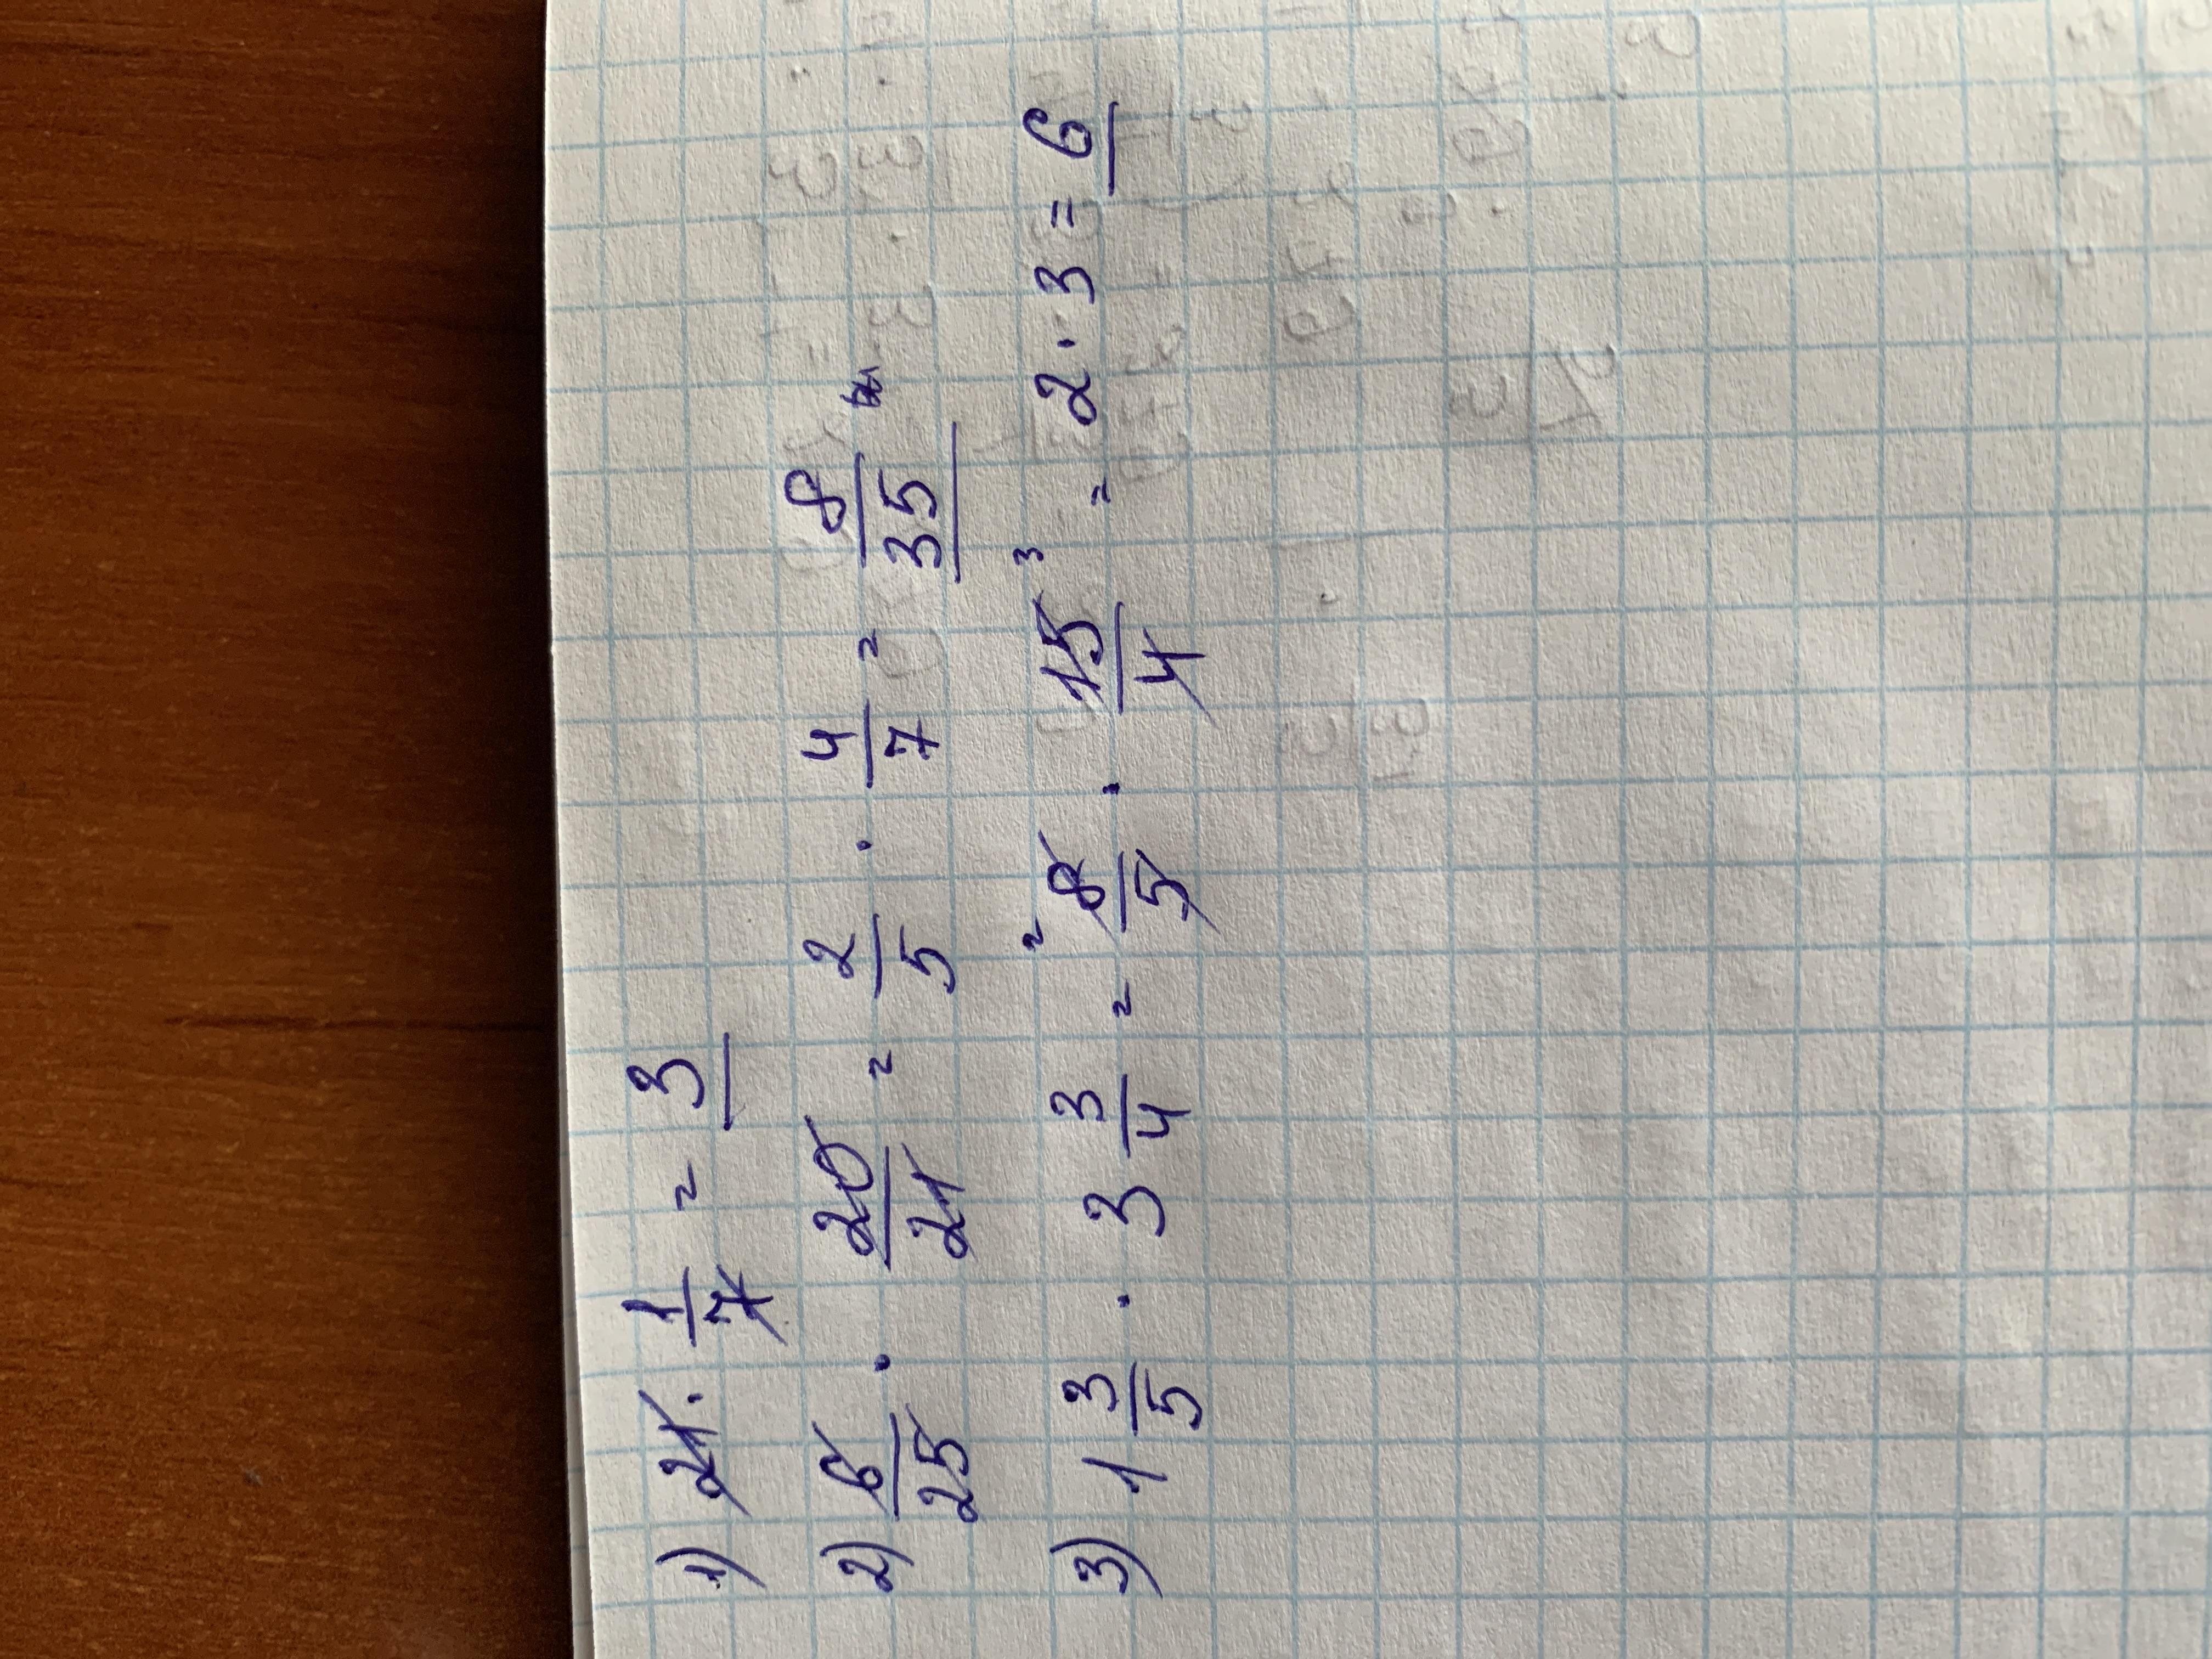 1) 21 · 1/7 = 3
2) 6/25 · 20/21 = 2/5 · 4/7 = 8/35
3) 1 3/5 · 3 3/4 = 8/5 ² · 15/4 ³ = 2 · 3 = 6